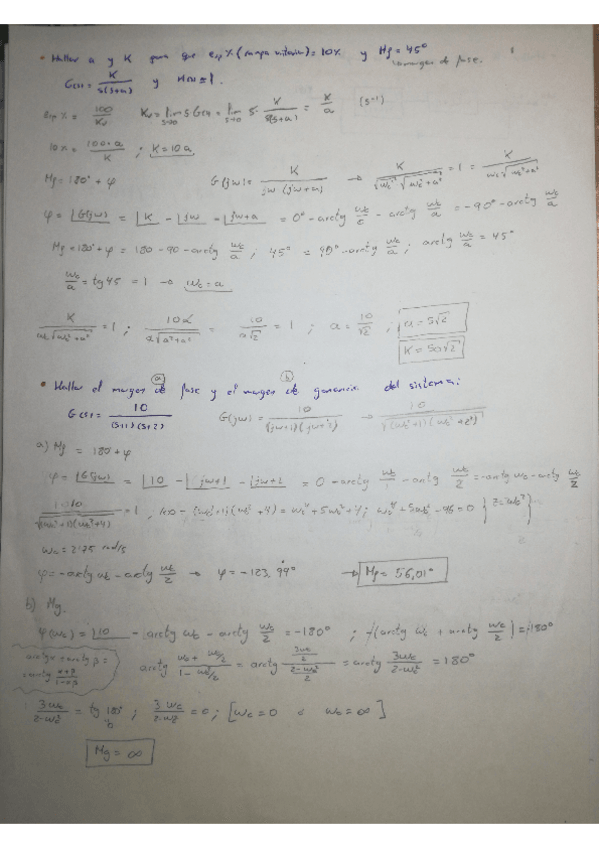 • Hallar a y K para que erp % (rampa unitaria) = 10% y Mf = 45°
margen de fase.
G(s) = K / s(s+a) y H(s) = 1.
erp % = 100 / Kv Kv = lim s→0 s·G(s) = lim s→0 s· K / s(s+a) = K / a (s⁻¹)
10% = 100·a / K ; K = 10a
Mf = 180° + φ G(jω) = K / jω (jω+a) → K / √ωc² · √ωc²+a² = 1 = K / ωc √ωc²+a²
φ = ∠G(jω) = ∠K - ∠jω - ∠jω+a = 0° - arctg ωc/0 - arctg ωc/a = -90° - arctg ωc/a
Mf = 180° + φ = 180 - 90 - arctg ωc/a ; 45° = 90° - arctg ωc/a ; arctg ωc/a = 45°
ωc/a = tg 45 = 1 → ωc = a
K / ωc √ωc²+a² = 1 ; 10a / a√a²+a² = 10 / a√2 = 1 ; a = 10/√2 ; a = 5√2
K = 50√2
• Hallar el margen de fase y el margen de ganancia del sistema:
(a) (b)
G(s) = 10 / (s+1)(s+2) G(jω) = 10 / (jω+1)(jω+2) → 10 / √(ωc²+1)(ωc²+2²)
a) Mf = 180 + φ
φ = ∠G(jω) = ∠10 - ∠jω+1 - ∠jω+2 = 0 - arctg ωc/1 - arctg ωc/2 = -arctg ωc - arctg ωc/2
= 1 , 100 - (ωc²+1)(ωc²+4) = ωc⁴ + 5ωc² + 4 ; ωc⁴ + 5ωc² - 96 = 0 { z = ωc² }
ωc = 2.75 rad/s
φ = -arctg ωc - arctg ωc/2 → φ = -123,99° → Mf = 56,01°
b) Mg.
φ(ωc) = ∠10 - arctg ωc - arctg ωc/2 = -180° ; -(arctg ωc + arctg ωc/2) = -180°
arctg α + arctg β = = arctg α+β / 1-αβ
arctg ωc + ωc/2 / 1 - ωc²/2 = arctg 3ωc/2 / 2-ωc²/2 = arctg 3ωc / 2-ωc² = 180°
3ωc / 2-ωc² = tg 180° ; 3ωc / 2-ωc² = 0 ; [ωc = 0 o ωc = ∞]
0
Mg = ∞